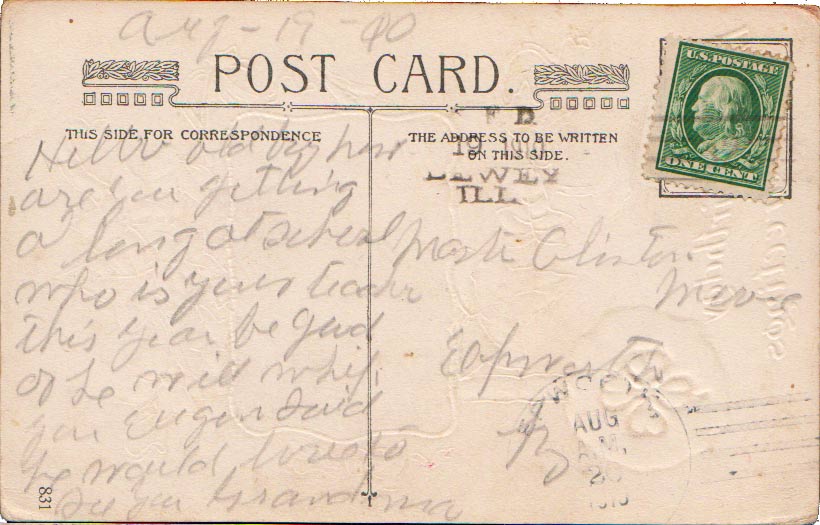 Aug - 19 - 10
POST CARD.
U.S. POSTAGE
ONE CENT
THIS SIDE FOR CORRESPONDENCE
THE ADDRESS TO BE WRITTEN
ON THIS SIDE.
F. D.
19
DEWEY
ILL
Hello old boy how
are you getting
a long at school
who is your teacher
this year be good
or he will whip
you Eugen said
he would love to
see you Grandma
Clinton
Epworth
AUG
1910
831